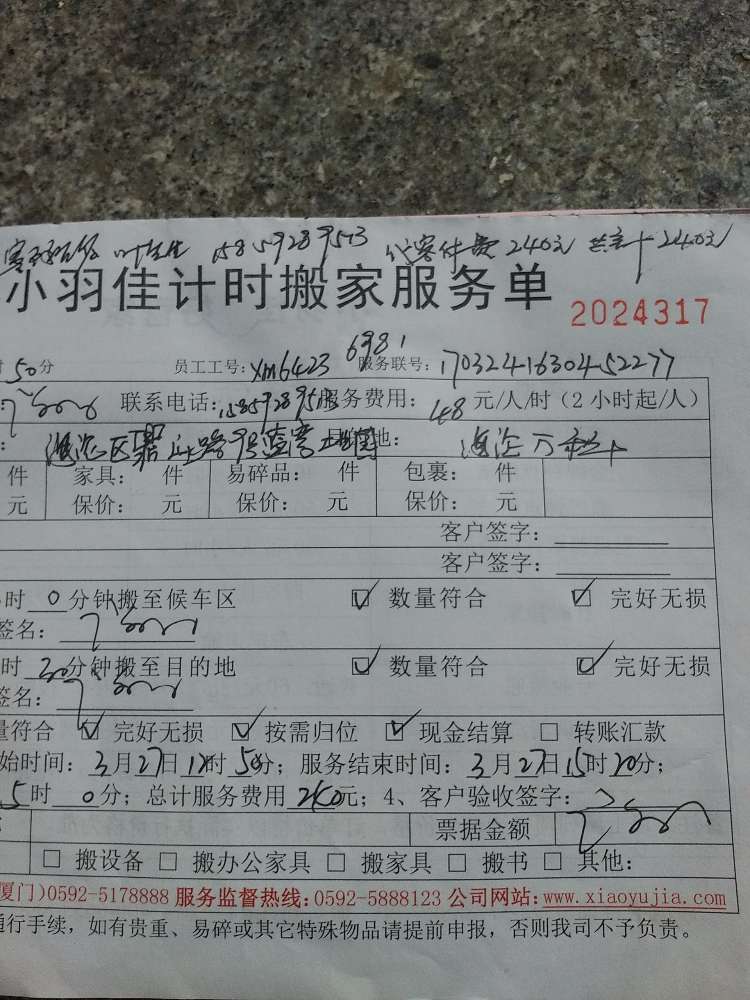 叶先生 15859289513 代客付款 240元 240元
小羽佳计时搬家服务单 2024317
6981
时50分 员工工号:xm6423 服务联号:170324163045227
联系电话:15859289513 服务费用:48元/人/时（2小时起/人）
海沧区 路 号蓝湾 地: 海沧万科
件 家具: 件 易碎品: 件 包裹: 件
元 保价: 元 保价: 元 保价: 元
客户签字:
客户签字:
时0分钟搬至候车区 ☑ 数量符合 ☑ 完好无损
签名:
时30分钟搬至目的地 ☑ 数量符合 ☑ 完好无损
签名:
量符合 ☑ 完好无损 ☑ 按需归位 ☑ 现金结算 □ 转账汇款
始时间: 3月27日12时50分; 服务结束时间: 3月27日15时20分;
5时0分; 总计服务费用240元; 4、客户验收签字:
票据金额
□ 搬设备 □ 搬办公家具 □ 搬家具 □ 搬书 □ 其他:
厦门)0592-5178888 服务监督热线:0592-5888123 公司网站:www.xiaoyujia.com
通行手续，如有贵重、易碎或其它特殊物品请提前申报，否则我司不予负责。